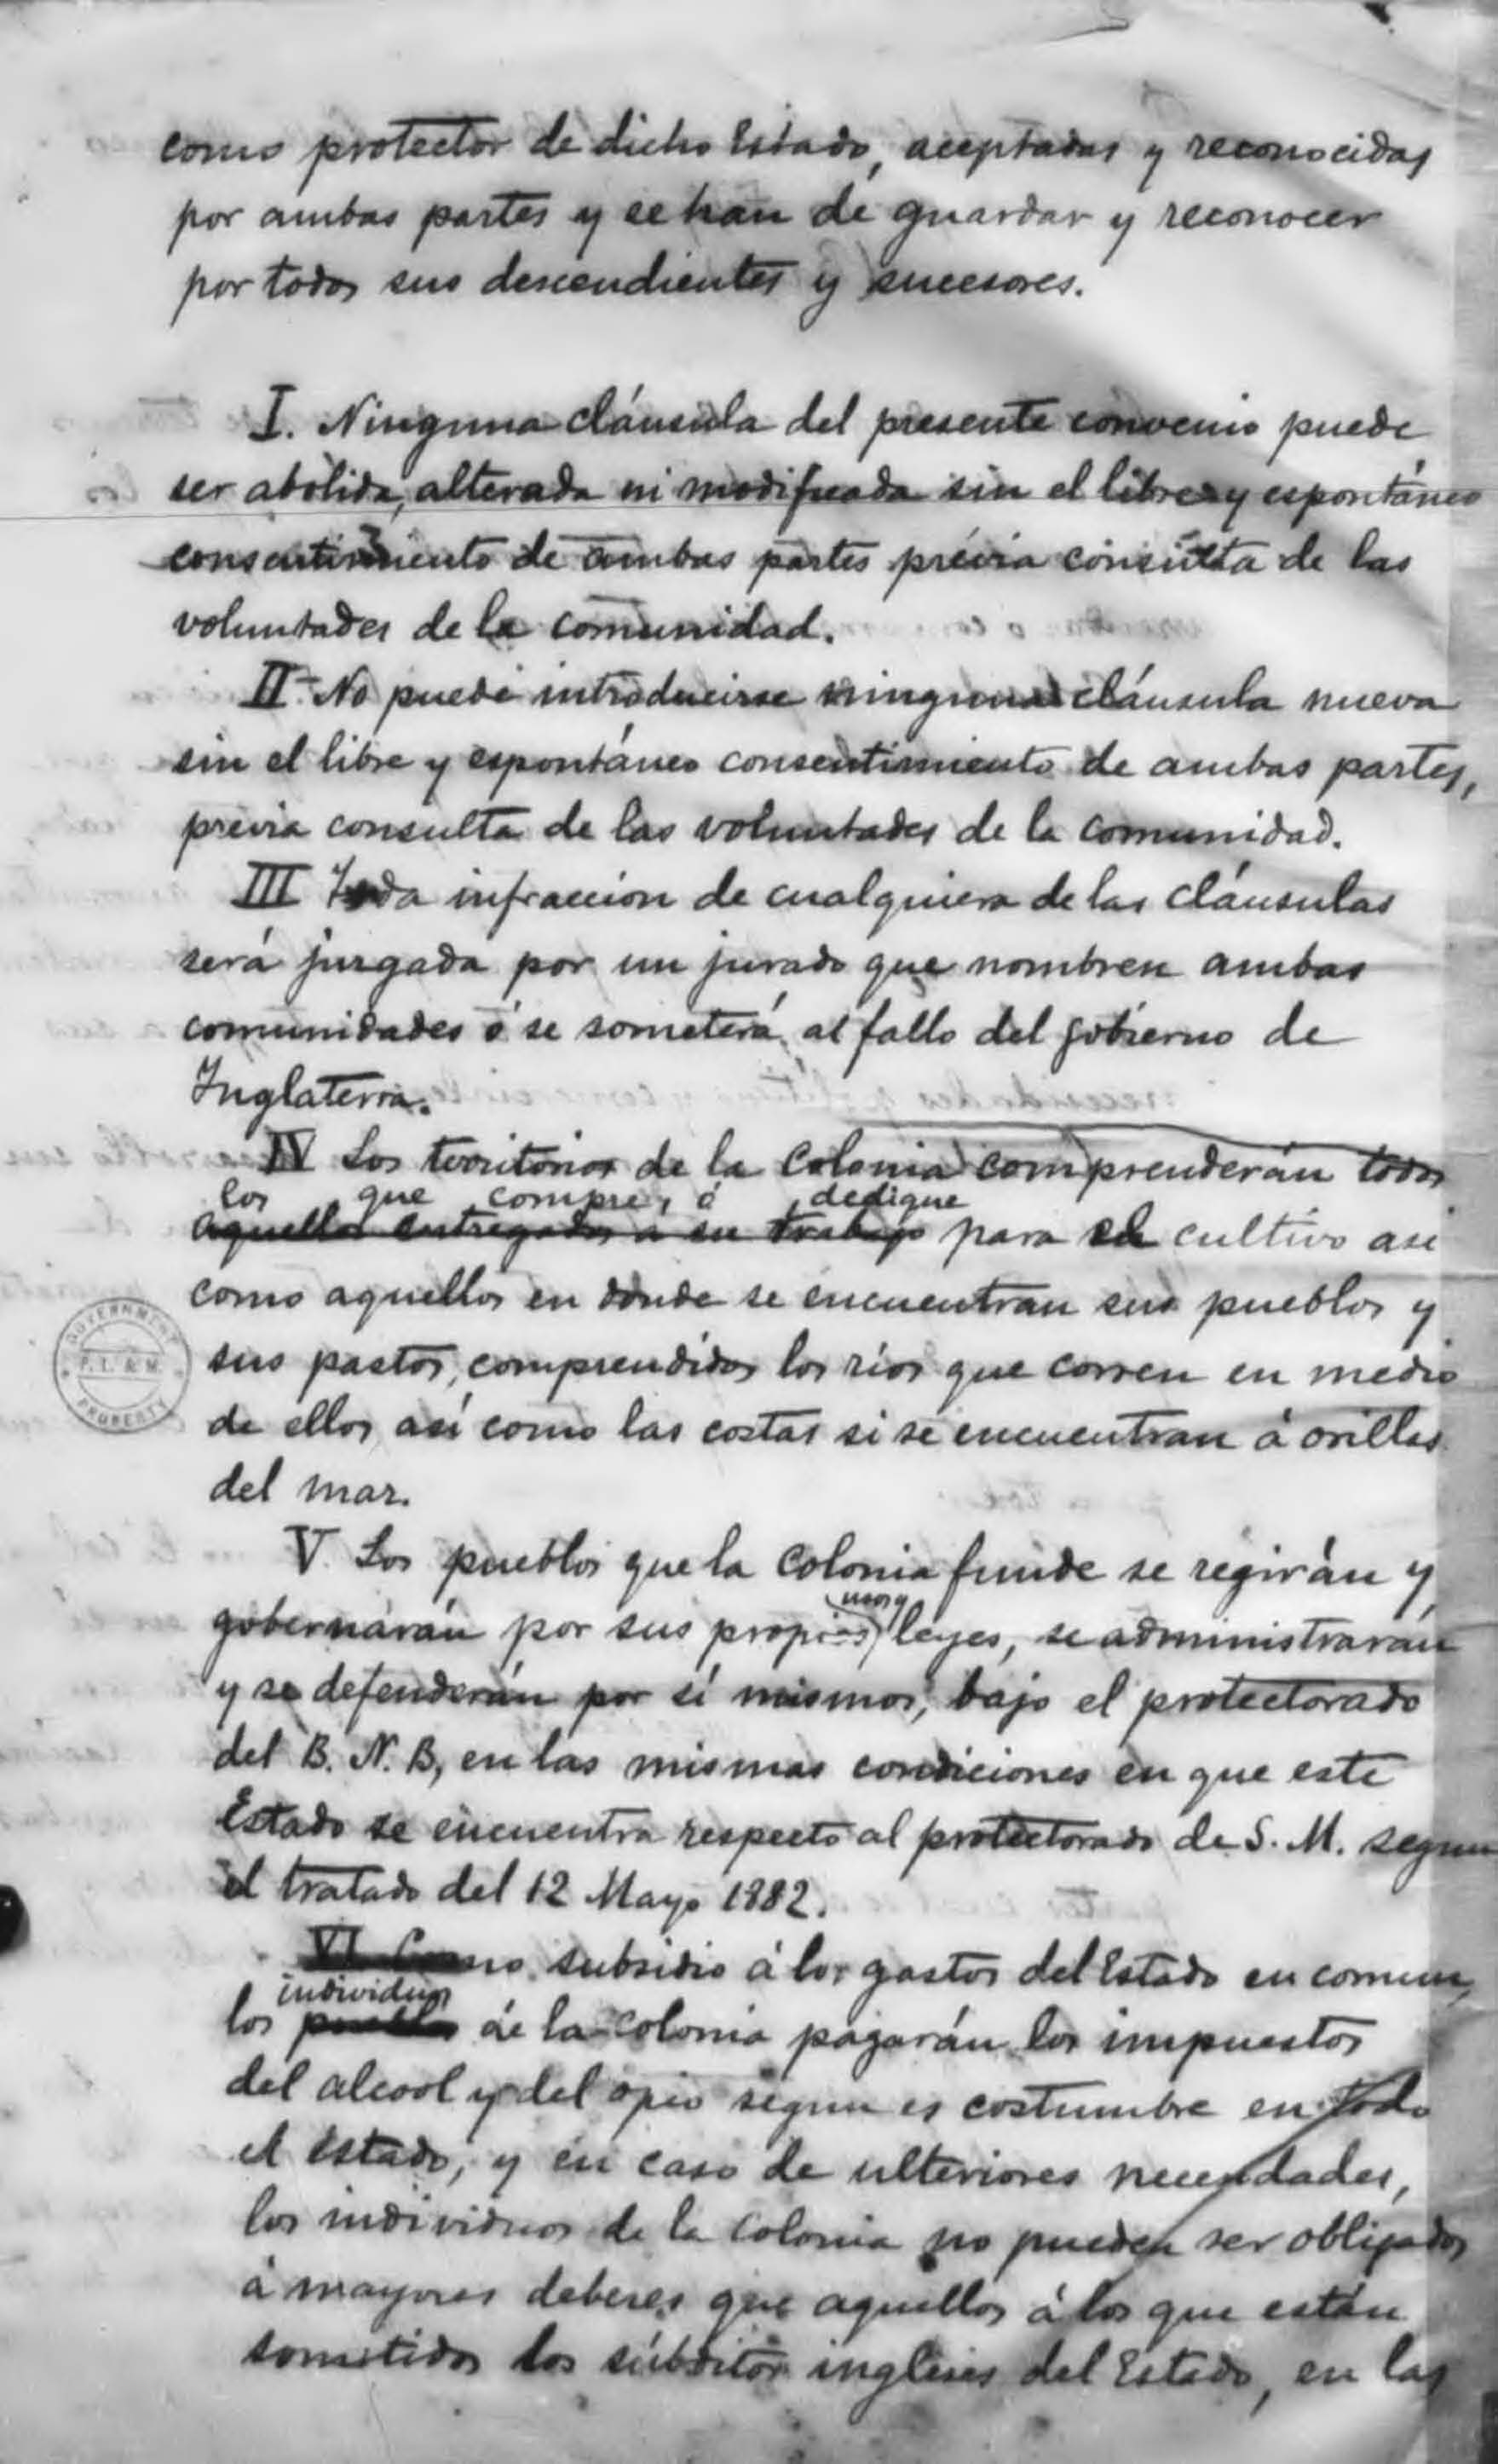 como protector de dicho Estado, aceptadas y reconocidas
por ambas partes y se han de guardar y reconocer
por todos sus descendientes y sucesores.
I. Ninguna cláusula del presente convenio puede
ser abolida, alterada ni modificada sin el libre y espontáneo
consentimiento de ambas partes prévia consulta de las
voluntades de la comunidad.
II.- No puede introducirse ninguna cláusula nueva
sin el libre y espontáneo consentimiento de ambas partes,
prévia consulta de las voluntades de la comunidad.
III Toda infraccion de cualquiera de las cláusulas
será juzgada por un jurado que nombren ambas
comunidades ó se someterá al fallo del gobierno de
Inglaterra.
IV Los territorios de la Colonia comprenderán todos
los que compre, ó dedique
aquellos entregados á su trabajo para el cultivo asi
como aquellos en donde se encuentran sus pueblos y
sus pastos, comprendidos los rios que corren en medio
de ellos, así como las costas si se encuentran á orillas
del mar.
GOVERNMENT P. L. & M. PROPERTY
V. Los pueblos que la Colonia funde se regirán y
usos y
gobernarán por sus propias leyes, se administrarán
y se defenderán por sí mismos, bajo el protectorado
del B. N. B, en las mismas condiciones en que este
Estado se encuentra respecto al protectorado de S. M. segun
el tratado del 12 Mayo 1882.
VI Como subsidio á los gastos del Estado en comun,
individuos
los pueblos de la Colonia pagarán los impuestos
del alcool y del opio segun es costumbre en todo
el Estado, y en caso de ulteriores necesidades,
los individuos de la Colonia no pueden ser obligados
á mayores deberes que aquellos á los que están
sometidos los súbditos ingleses del Estado, en las